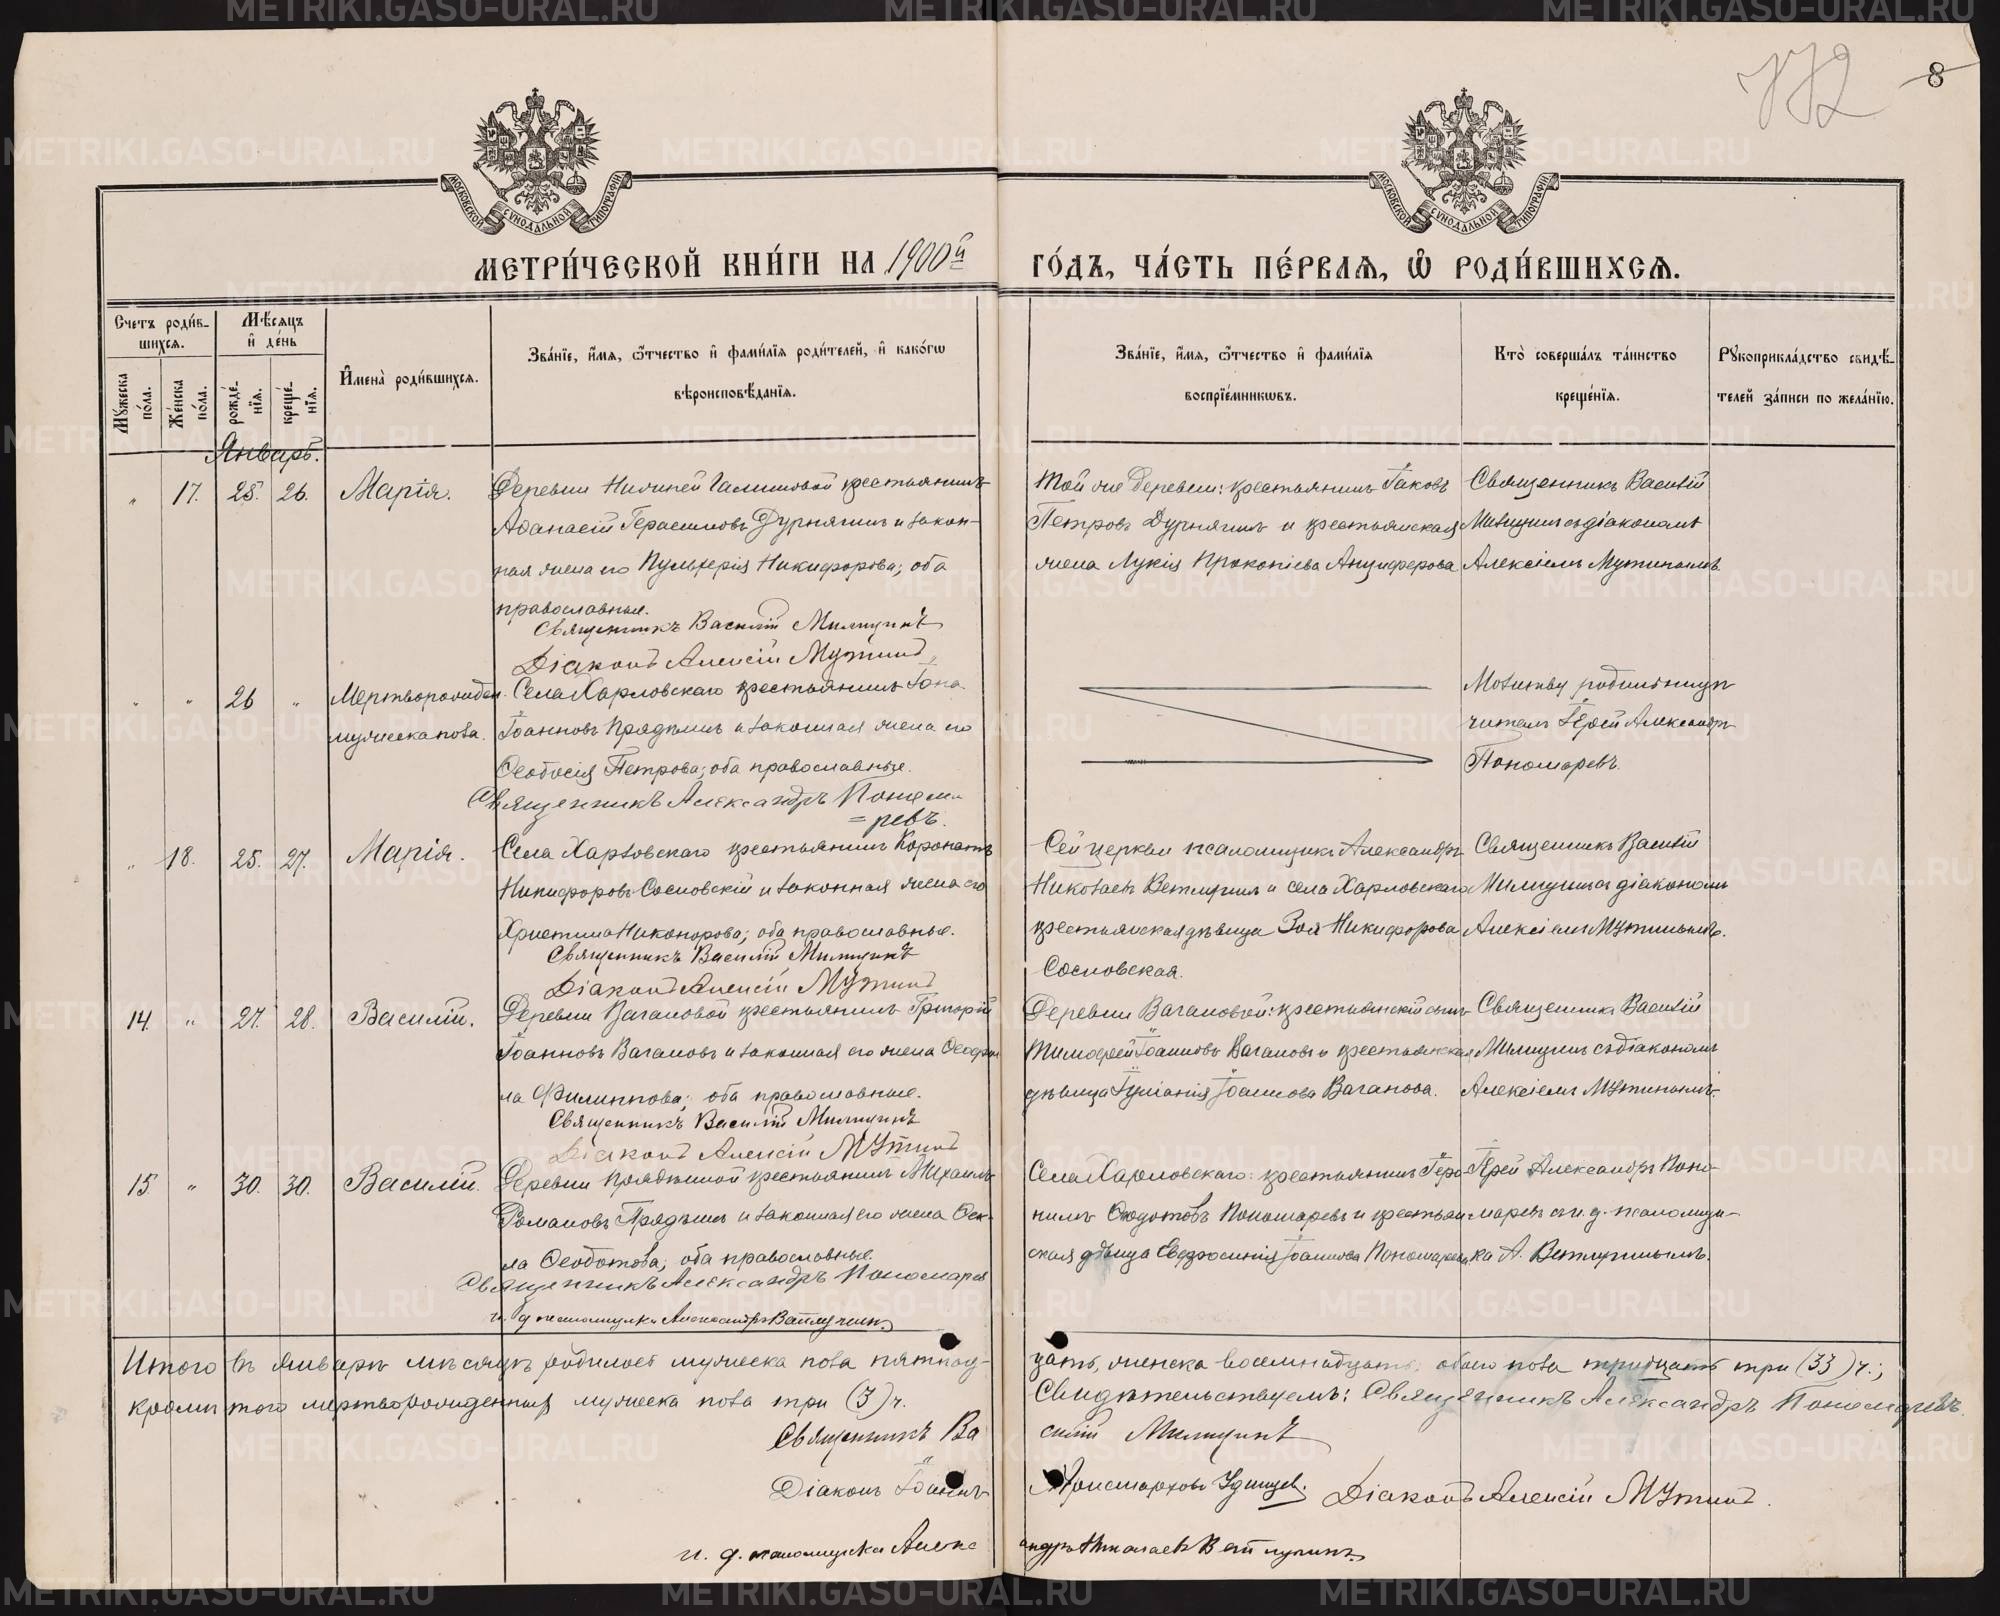 172
8
МОСКОВСКОЙ СУНОДАЛЬНОЙ ТИПОГРАФІИ
МОСКОВСКОЙ СУНОДАЛЬНОЙ ТИПОГРАФІИ
МЕТРИ́ЧЕСКОЙ КНИ́ГИ НА 1900й ГО́ДЪ, ЧА́СТЬ ПЕ́РВАЯ, Ѡ РОДИ́ВШИХСЯ.
Счетъ роди́в-
шихся.
Мѣсяцъ
и де́нь
Му́жеска
по́ла.
Же́нска
по́ла.
рожде́-
нія.
креще́-
нія.
Имена̀ роди́вшихся.
Зва́ніе, и́мя, ѻ́тчество и фами́лія роди́телей, и како́гѡ
вѣроисповѣ́данія.
Зва́ніе, и́мя, ѻ́тчество и фами́лія
воспріе́мникѡвъ.
Кто̀ соверша́лъ та́инство
креще́нія.
Рꙋкоприкла́дство свидѣ́-
телей за́писи по жела́нію.
Январь.
„ 17. 25. 26. Марія.
Деревни Нижней крестьянинъ
Аѳанасій Герасимовъ Дурнягинъ и закон-
ная жена его Пульхерія Никифорова; оба
православные.
Священникъ Василій Милицинъ
Діаконъ Алексій Мутинъ
Той же деревни: крестьянинъ Іаковъ
Петровъ Дурнягинъ и крестьянская
жена Лукія Прокопіева Анциферова
Священникъ Василій
Милицинъ съ діакономъ
Алексіемъ Мутинымъ.
„ „ 26 „ Мертворожден.
мужеска пола.
Села Харловскаго крестьянинъ Іона
Іоанновъ Прядеинъ и законная жена его
Ѳеодосія Петрова; оба православные.
Священникъ Александръ Понома-
=ревъ.
Молитву родильницѣ
читалъ Іерей Александръ
Пономаревъ.
„ 18. 25. 27. Марія.
Села Харловскаго крестьянинъ Коронатъ
Никифоровъ Сосновскій и законная жена его
Христина Никанорова; оба православные.
Священникъ Василій Милицинъ
Діаконъ Алексій Мутинъ
Сей церкви псаломщикъ Александръ
Николаевъ Ветлугинъ и села Харловскаго
крестьянская дѣвица Зоя Никифорова
Сосновская.
Священникъ Василій
Милицинъ съ діакономъ
Алексіемъ Мутинымъ.
14. „ 27. 28. Василій.
Деревни Вагановой крестьянинъ Григорій
Іоанновъ Вагановъ и законная его жена
Филиппова; оба православные.
Священникъ Василій Милицинъ
Діаконъ Алексій Мутинъ
Деревни Вагановой: крестьянскій сынъ
Тимофей Іоанновъ Вагановъ и крестьянская
дѣвица Іуліанія Іоаннова Ваганова.
Священникъ Василій
Милицинъ съ діакономъ
Алексіемъ Мутинымъ.
15. „ 30. 30. Василій.
Деревни Прядеиной крестьянинъ Михаилъ
Романовъ Прядеинъ и законная его жена Ѳек-
ла Ѳеодотова; оба православные.
Священникъ Александръ Пономарев
и. д. псаломщика Александръ Ветлугинъ
Села Харловскаго: крестьянинъ Іеро-
нимъ Ѳеодотовъ Пономаревъ и крестьян-
ская дѣвица Евфросинія Іоаннова Пономарева
Іерей Александръ Поно-
маревъ съ и. д. псаломщи-
ка А. Ветлугинымъ.
Итого въ январѣ мѣсяцѣ родилось мужеска пола пятнад-
цать, женска восемнадцать, обоего пола тридцать три (33) ч.;
кромѣ того мертворожденныхъ мужеска пола три (3) ч.
Свидѣтельствуемъ: Священникъ Александръ Пономаревъ.
Священникъ Василій Милицинъ
Діаконъ Іоаннъ Аристарховъ Удинцев. Діаконъ Алексій Мутинъ.
и. д. псаломщика Александръ Николаевъ Ветлугинъ
METRIKI.GASO-URAL.RU